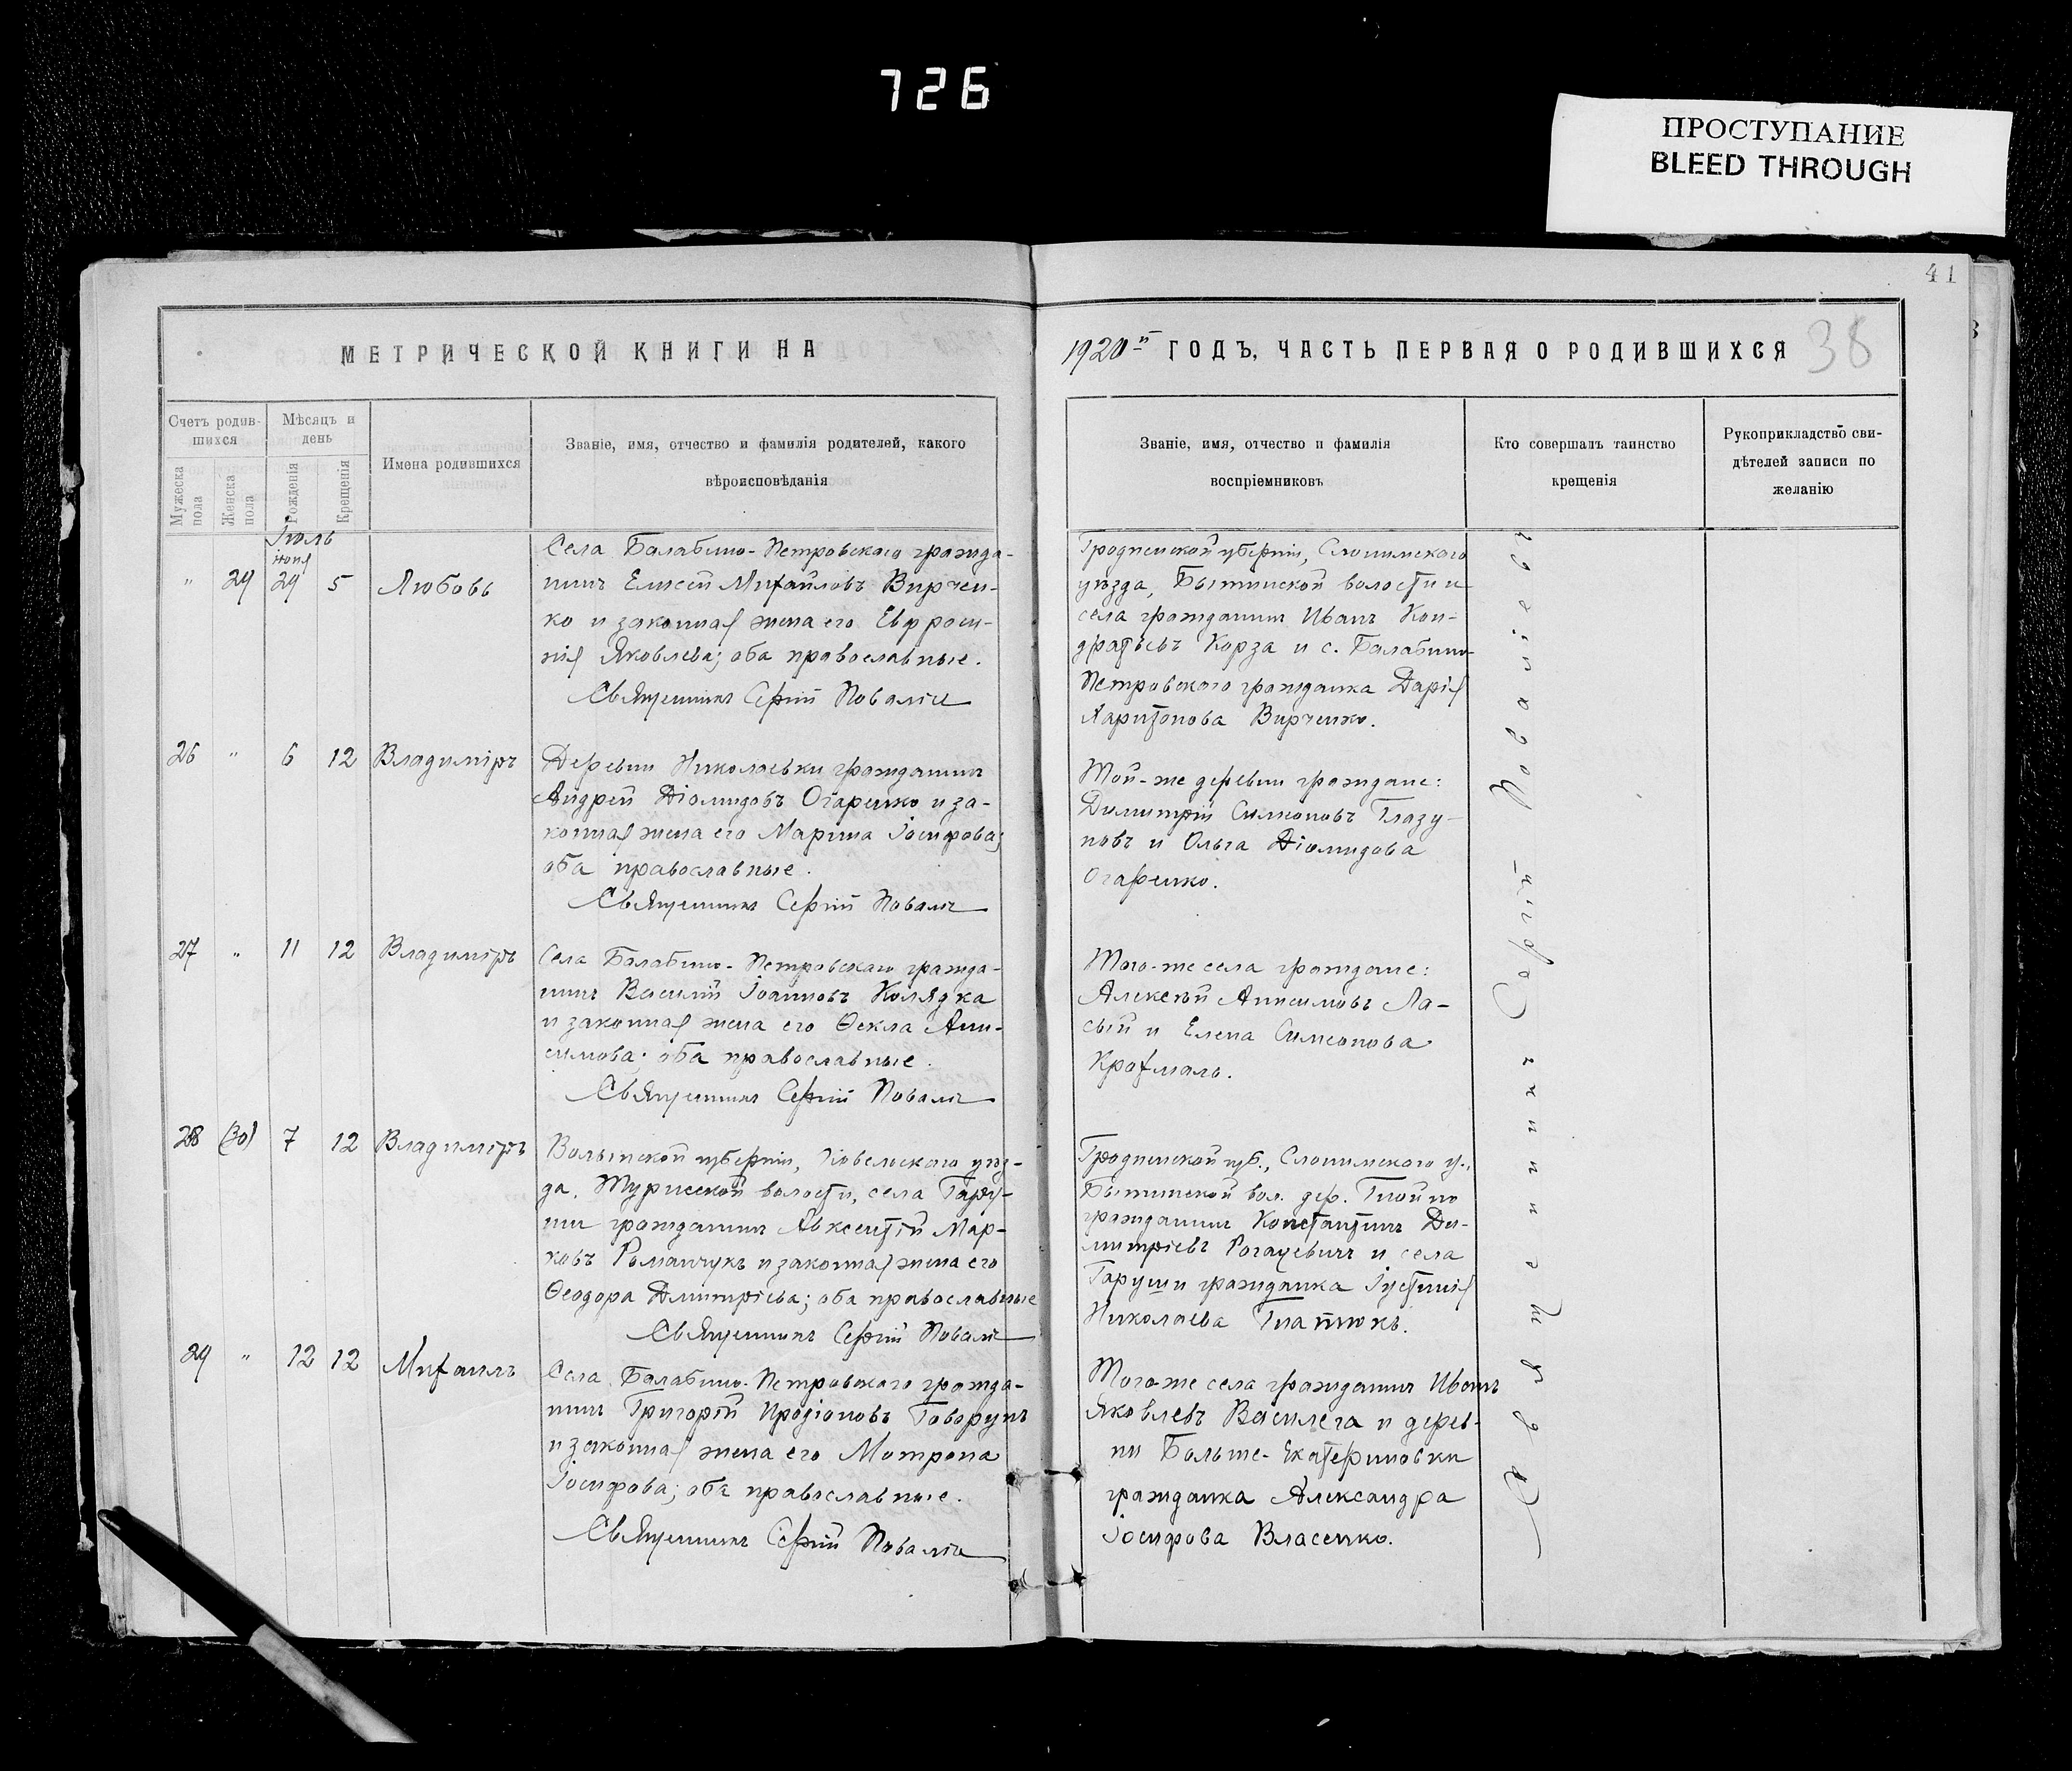 726
ПРОСТУПАНИЕ
BLEED THROUGH
41
МЕТРИЧЕСКОЙ КНИГИ НА
1920й ГОДЪ, ЧАСТЬ ПЕРВАЯ О РОДИВШИХСЯ
38
Счетъ родив-
шихся
Мужеска пола
Женска пола
Мѣсяцъ и
день
Рожденія
Крещенія
Имена родившихся
Званіе, имя, отчество и фамилія родителей, какого
вѣроисповѣданія
Званіе, имя, отчество и фамилія
воспріемниковъ
Кто совершалъ таинство
крещенія
Рукоприкладство сви-
дѣтелей записи по
желанію
Іюль
іюня
" 29 29 5 Любовь
Села Балабино-Петровского гражда-
нинъ Елисей Михайловъ Вирчен-
ко и законная жена его Евфроси-
нія Яковлева; оба православные.
Священникъ Сергій
Гродненской губерніи, Слонимского
уѣзда, Бытинской волости и
села гражданин Иванъ Кон-
дратьевъ Корза и с. Балабино-
Петровского гражданка Дарія
Харитонова Вирченко.
26 " 6 12 Владиміръ
Деревни Николаевки гражданинъ
Андрей Діомидовъ Огаренко и за-
конная жена его Марина Іосифова;
оба православные.
Священникъ Сергій
Той-же деревни граждане:
Димитрій Симеоновъ Глазу-
новъ и Ольга Діомидова
Огаренко.
27 " 11 12 Владиміръ
Села Балабино-Петровскаго гражда-
нинъ Василій Іоанновъ Колядка
и законная жена его Ѳекла Ани-
симова; оба православные.
Священникъ Сергій
Того-же села граждане:
Алексѣй Анисимовъ Ла-
сый и Елена Симеонова
Крохмаль.
28 (30) 7 12 Владиміръ
Волынской губерніи, Ковельского уѣз-
да, Турисской волости, села Гару-
ши гражданинъ Авксентій Мар-
ковъ Романчукъ и законная жена его
Ѳеодора Дмитріева; оба православные
Священникъ Сергій
Гродненской губ., Слонимского у.,
Бытинской вол. дер.
гражданинъ Константинъ Ди-
митріевъ Рогацевичъ и села
Гаруши гражданка Іустинія
Николаева
29 " 12 12 Михаилъ
Села Балабино-Петровскаго гражда-
нинъ Григорій Иродіоновъ Говорунъ
и законная жена его Матрона
Іосифова; оба православные.
Священникъ Сергій
Того-же села гражданин Иванъ
Яковлевъ Василега и дерев-
ни Больше-Екатериновки
гражданка Александра
Іосифова Власенко.
Священникъ Сергій